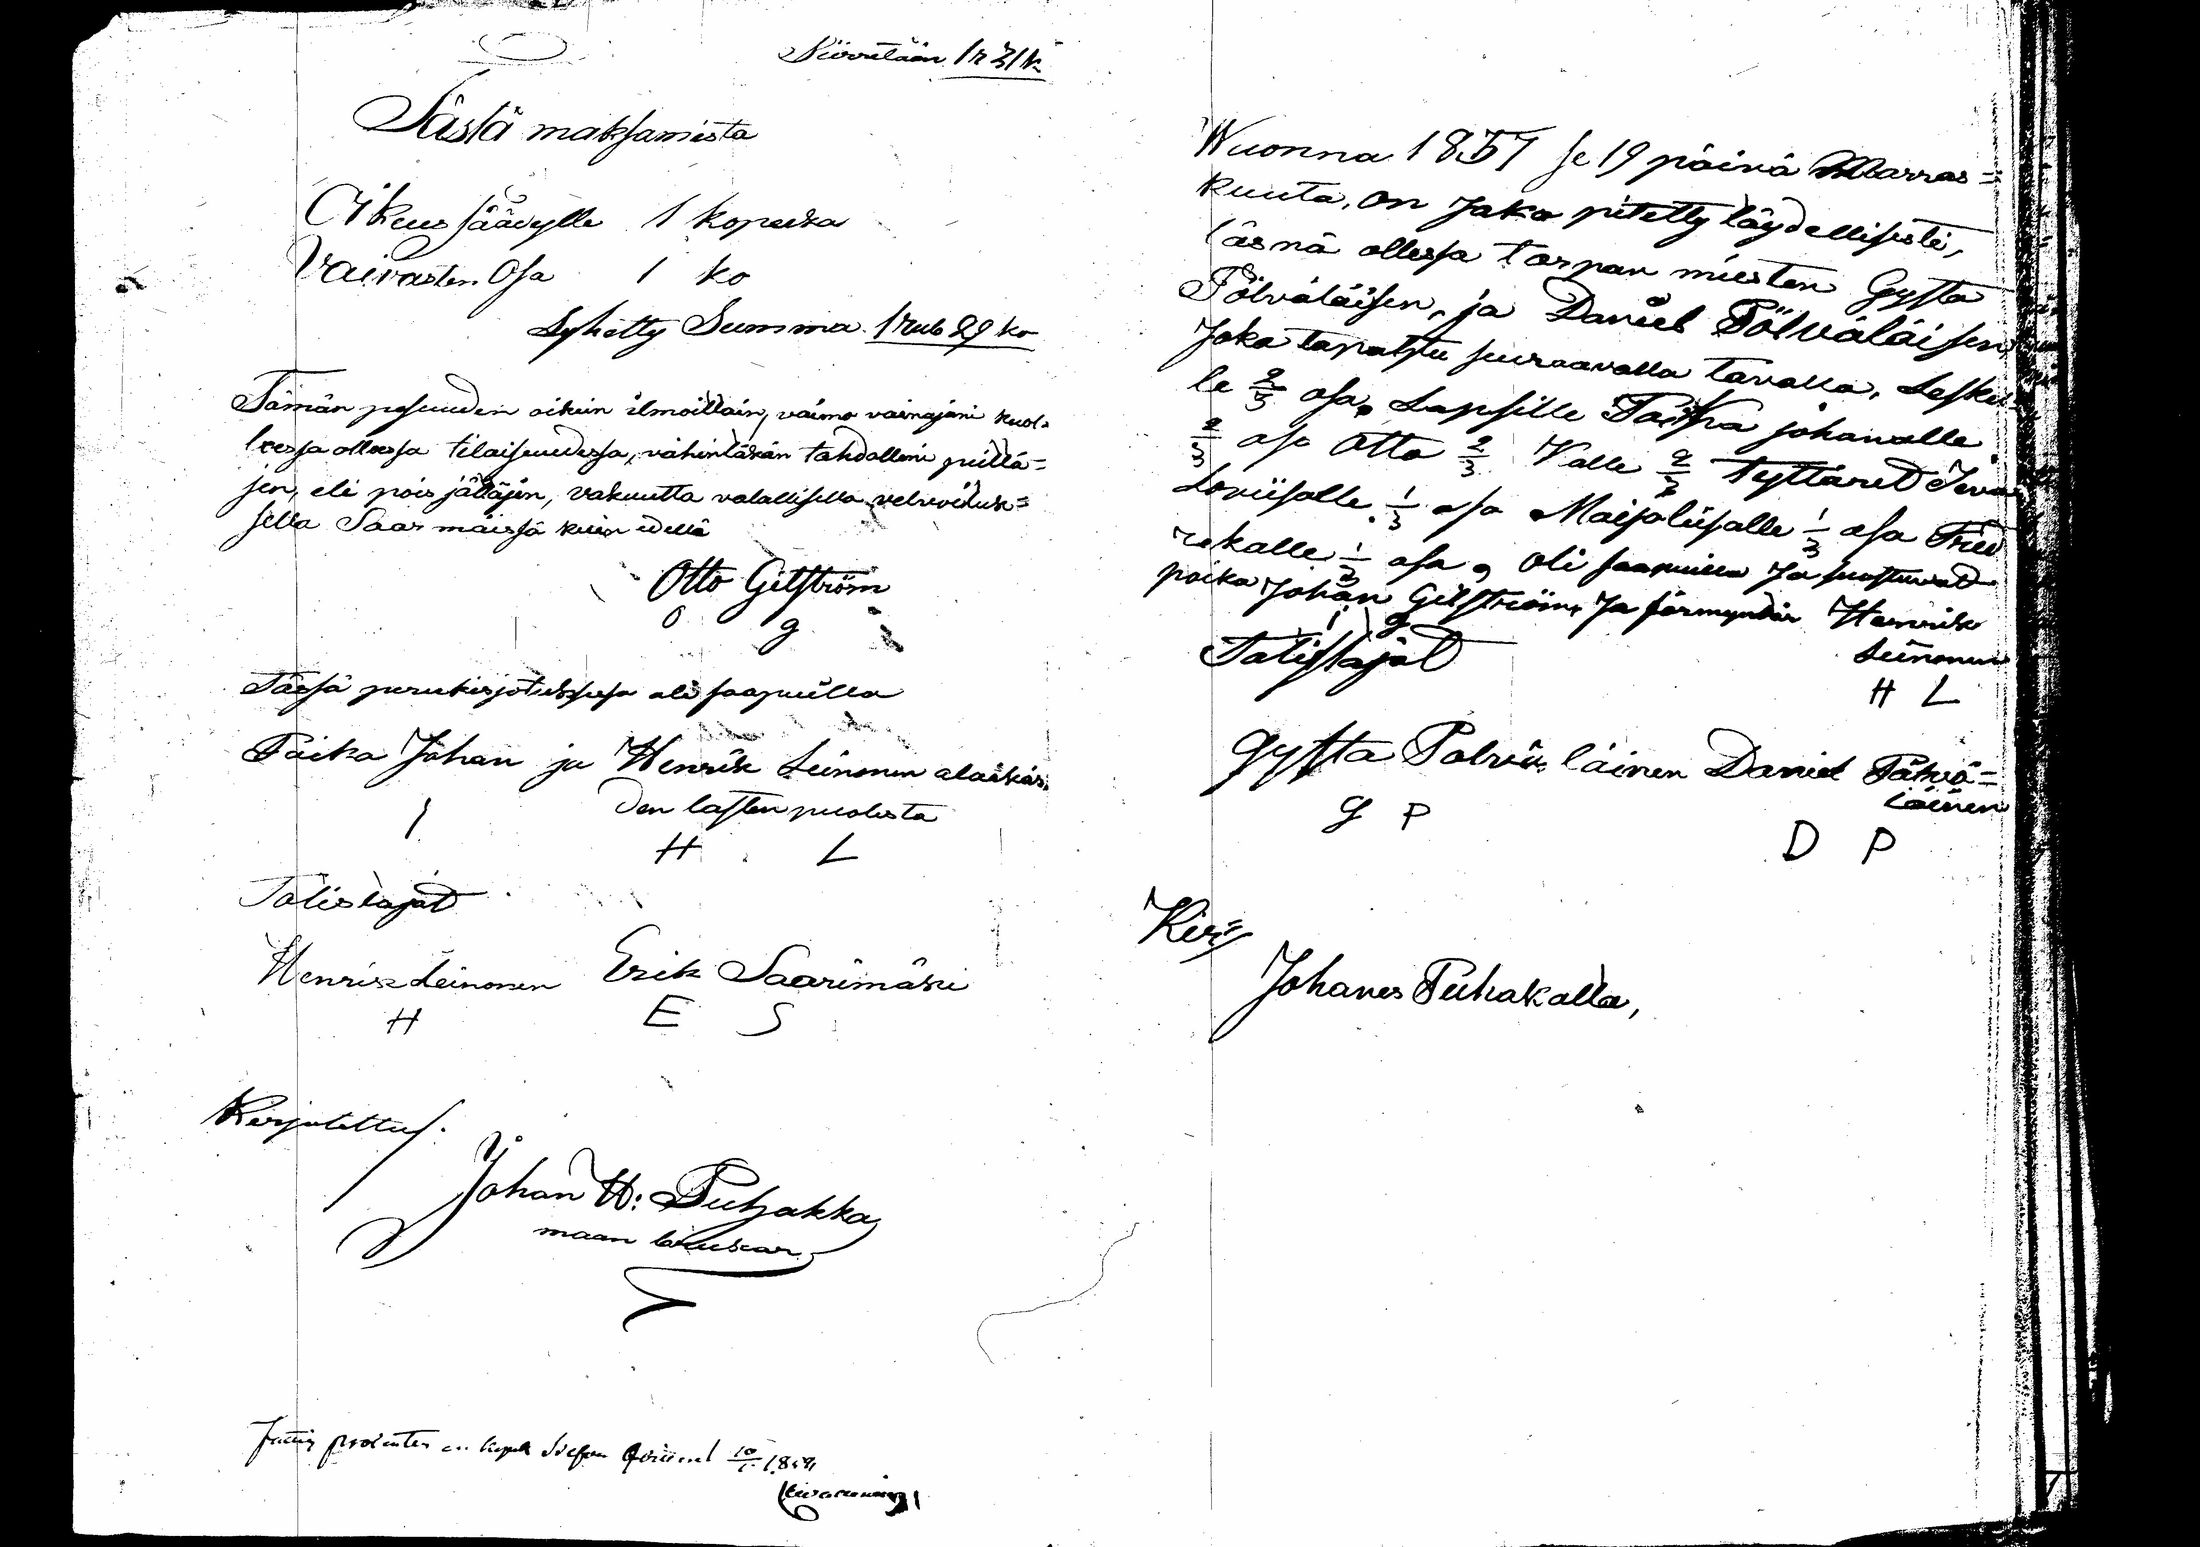 Siirretään 1 r 31 k
Tästä maksamista
Oikeus säädylle 1 kopeeka
Vaivasten Osa 1 ko
Lyhetty Summa 1 rub 29 ko
Tämän pesuuden oikein ilmoittain, vaimo vainajani kuol=
lessa ollessa tilaisuudessa, vähintäkän tahdollani peittä=
jen, eli pois jättäjen, vakuutta valallisella velvoituk=
sella Saarimäissä kuin edellä
Otto Gelström
O G
Tässä perukirjotuksessa oli saapuilla
Poika Johan ja Henrik Leinonen alaikäs
den lasten puolesta
I H L
Totistajat
Henrik Leinonen Erik Saarimäki
H E S
Kirjotettu
Johan H: Puhakka
maan
Wuonna 1857 se 19 päivä Marras=
kuuta, on Jako pitetty täydellisesti,
läsnä ollessa torpan miesten Gysta
Pölväläisen, ja Daniel Pölväläisen
Joka tapahtu seuraavalla tavalla, Leskel
le 2/3 osa, Lapsille Poika johanalle
2/3 osa Otto 2/3 Kalle 2/3 tyttäret Ieva
Loviisalle 1/3 osa Maijaliisalle 1/3 osa Fried
rekalle 1/3 osa, oli saapuilla Ja suostuvat
poika Johan Gelström, Ja förmyndär Henrik
I G Leinonen
Totistajat H L
Gysta Polvä läinen Daniel Pölvä=
läinen
G P D P
Kirj
Johanes Puhakalta,